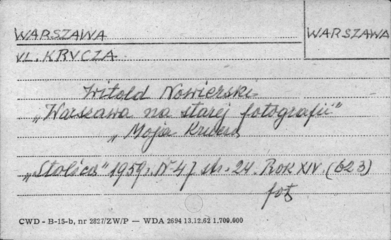 WARSZAWA
WARSZAWA
UL. KRUCZA
Witold Nowierski
„Warszawa na starej fotografii"
„Moja Krucza
„Stolica" 1959 r. Nr 47 str. 24. ROK XIV. (623)
fot.
CWD - B-15-b, nr 2827/ZW/P — WDA 2694 13.12.62 1,700.000